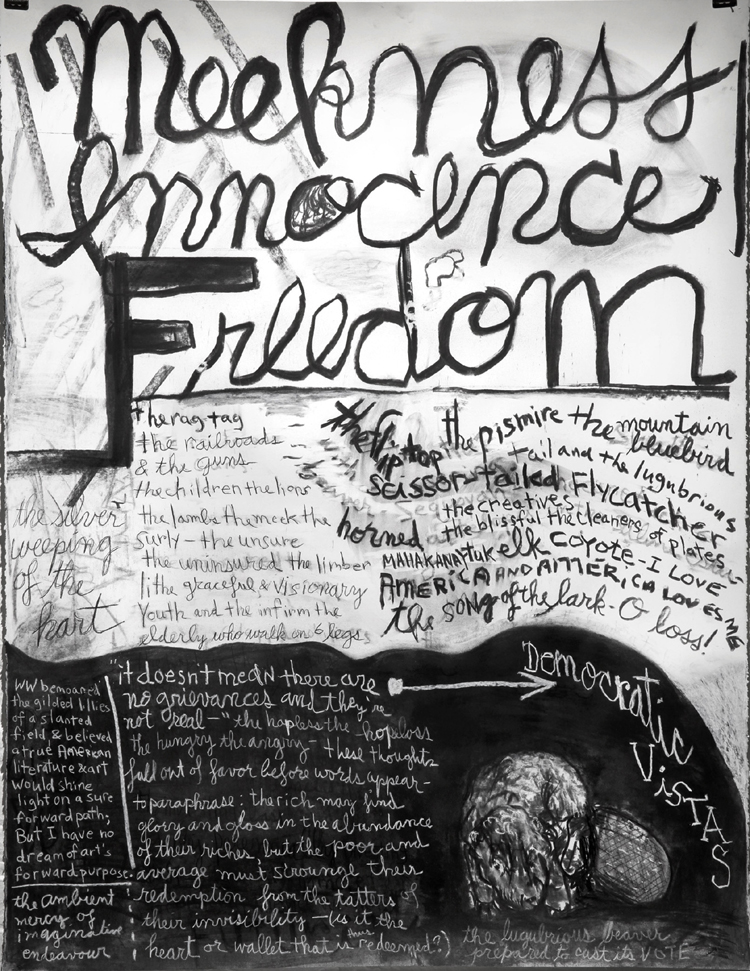 Meekness
Innocence
Freedom
the rag tag
the railroads
& the guns
the children the lions
the lambs the meek the
surly – the unsure
the uninsured the limber
lithe graceful & visionary
Youth and the infirm the
elderly who walk on 6 legs
the silver
weeping
of the
hart
the flip top
the pismire the mountain
bluebird
scissor-tailed Flycatcher
tail and the lugubrious
the creatives
horned
the blissful the cleaners of plates
elk coyote – I LOVE
AMERICA AND AMERICA LOVES ME
the SONG of the lark – O loss!
WW bemoaned
the gilded lilies
of a slanted
field & believed
a true American
literature & art
would shine
light on a sure
forward path;
But I have no
dream of art's
forward purpose.
the ambient
mercy of
imaginative
endeavour
"it doesn't mean there are
no grievances and they're
not real –" the hapless the hopeless
the hungry the angry – these thoughts
fall out of favor before words appear –
to paraphrase: the rich may find
glory and gloss in the abundance
of their riches, but the poor and
average must scrounge their
redemption from the tatters of
their invisibility – (is it the
heart or wallet that is thus redeemed?)
DEMOCRATIC
VISTAS
the lugubrious beaver
prepared to cast its VOTE